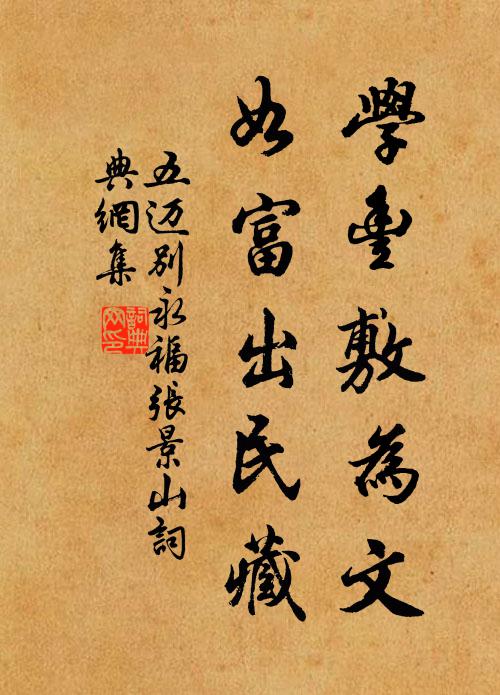 學豊敷為文
如富出民藏
五迈别永福張景山詞
典網集
詞典網印